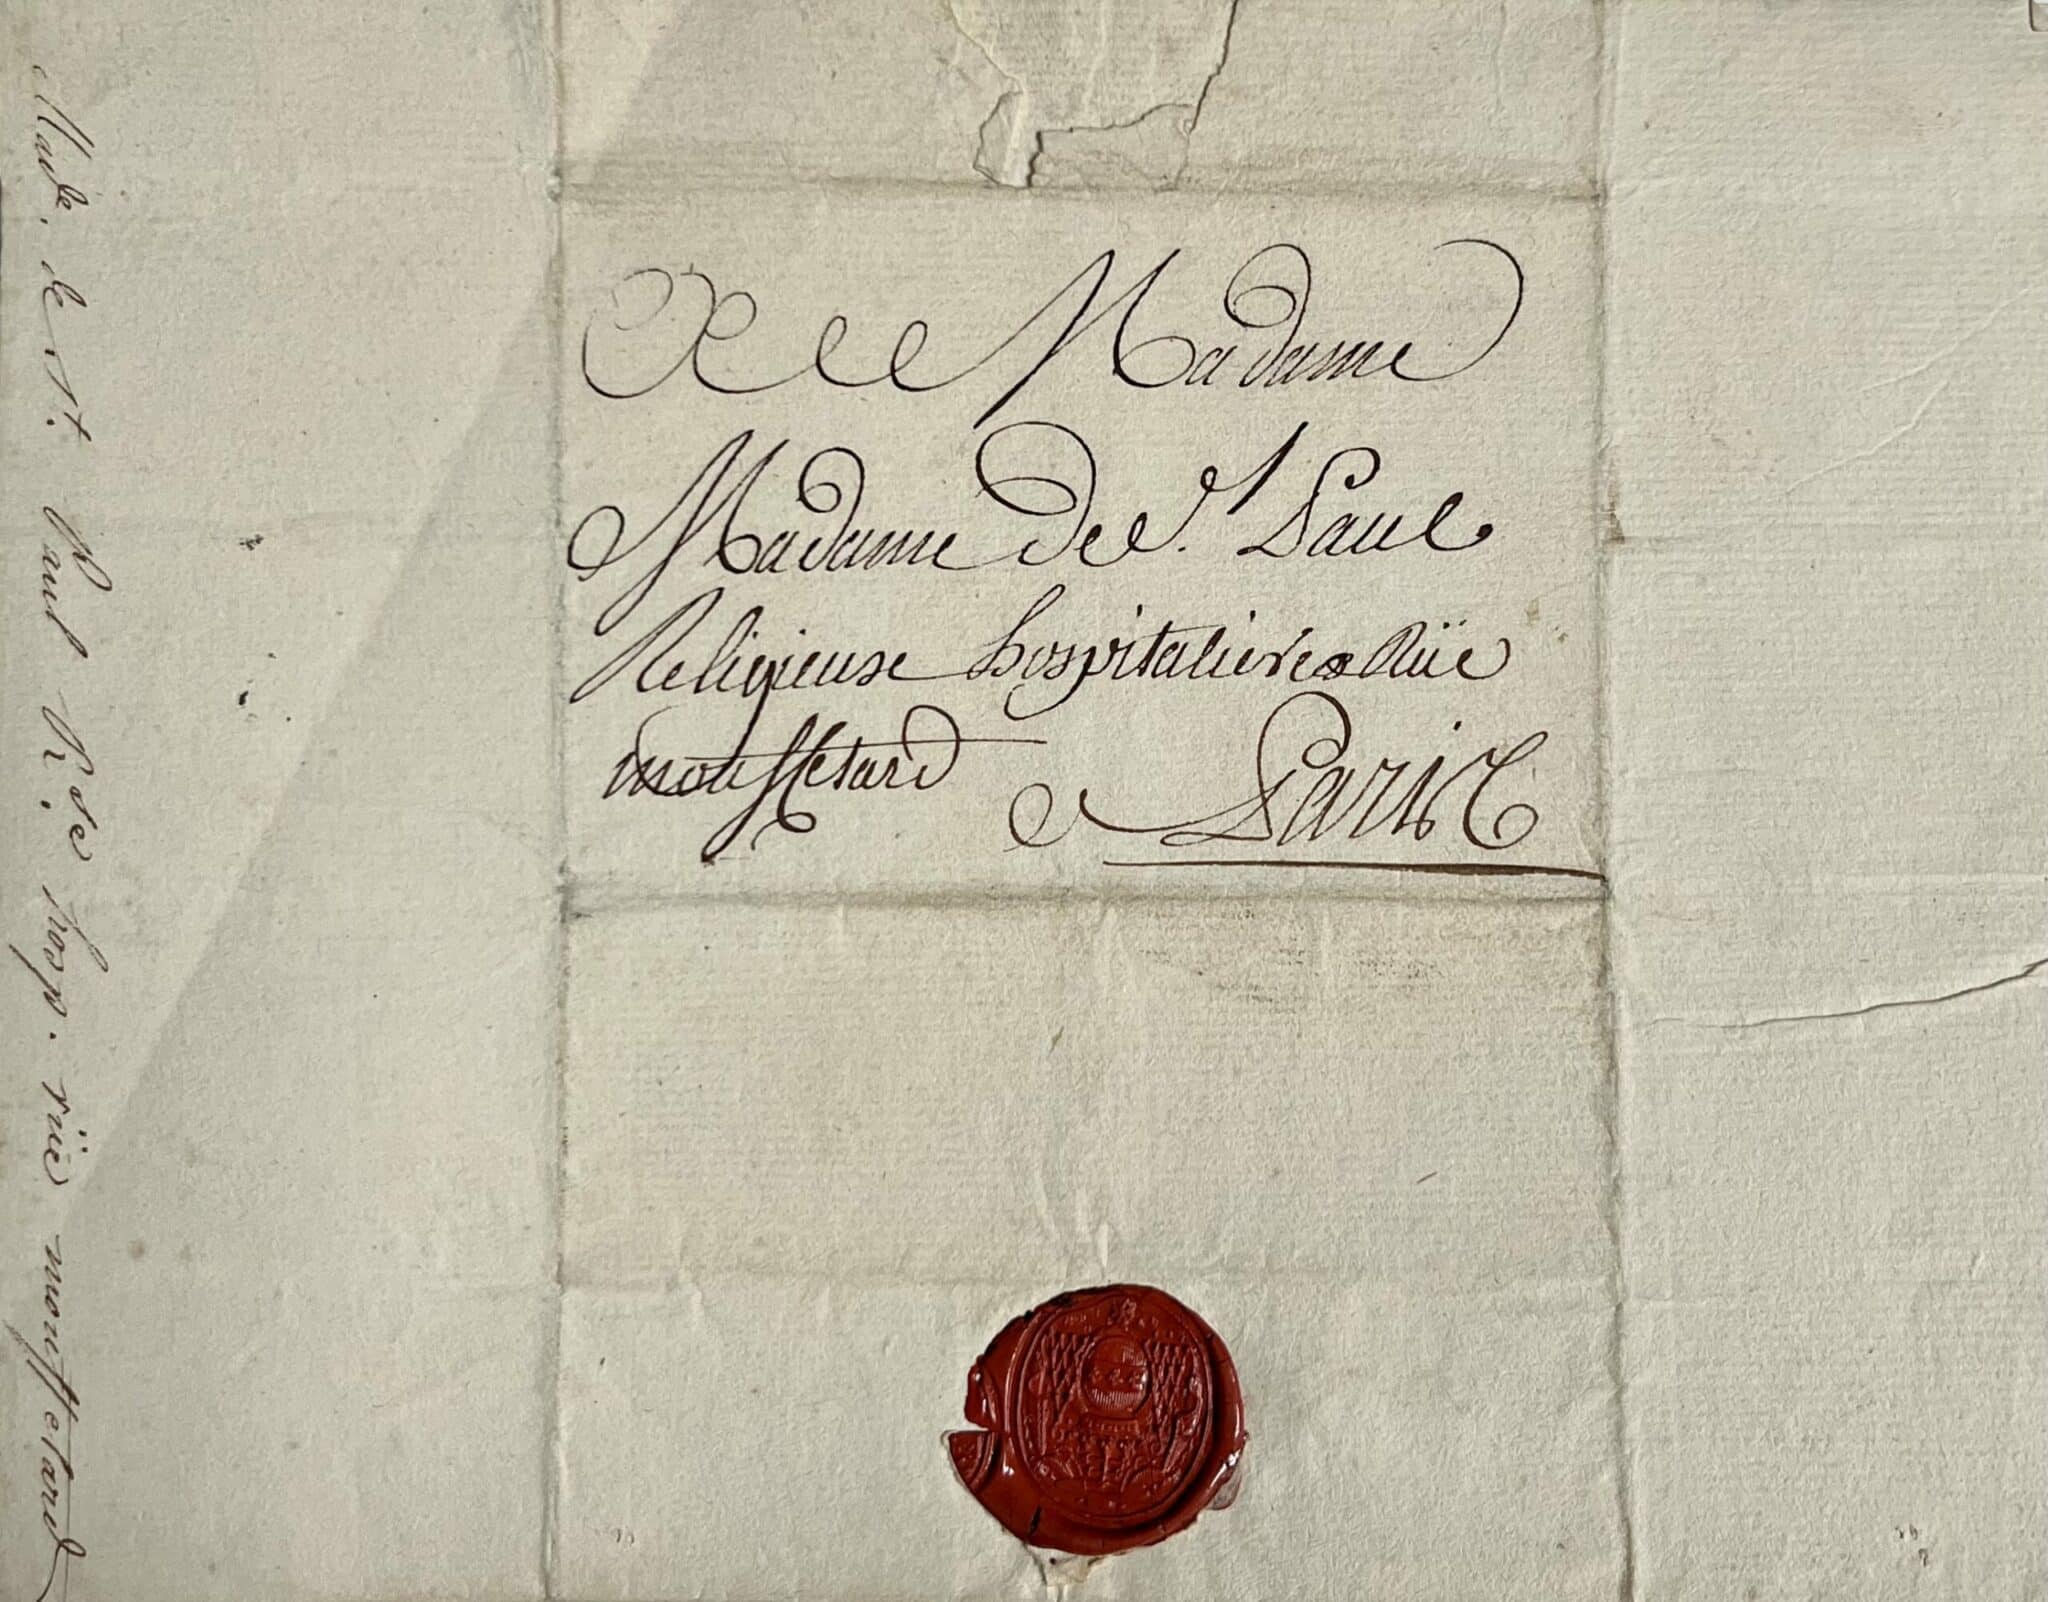 A Madame
Madame de St. Paul
Religieuse hospitaliere Rüe
mouffetard a Paris
Made. de St. Paul R. se hosp. rüe mouffetard